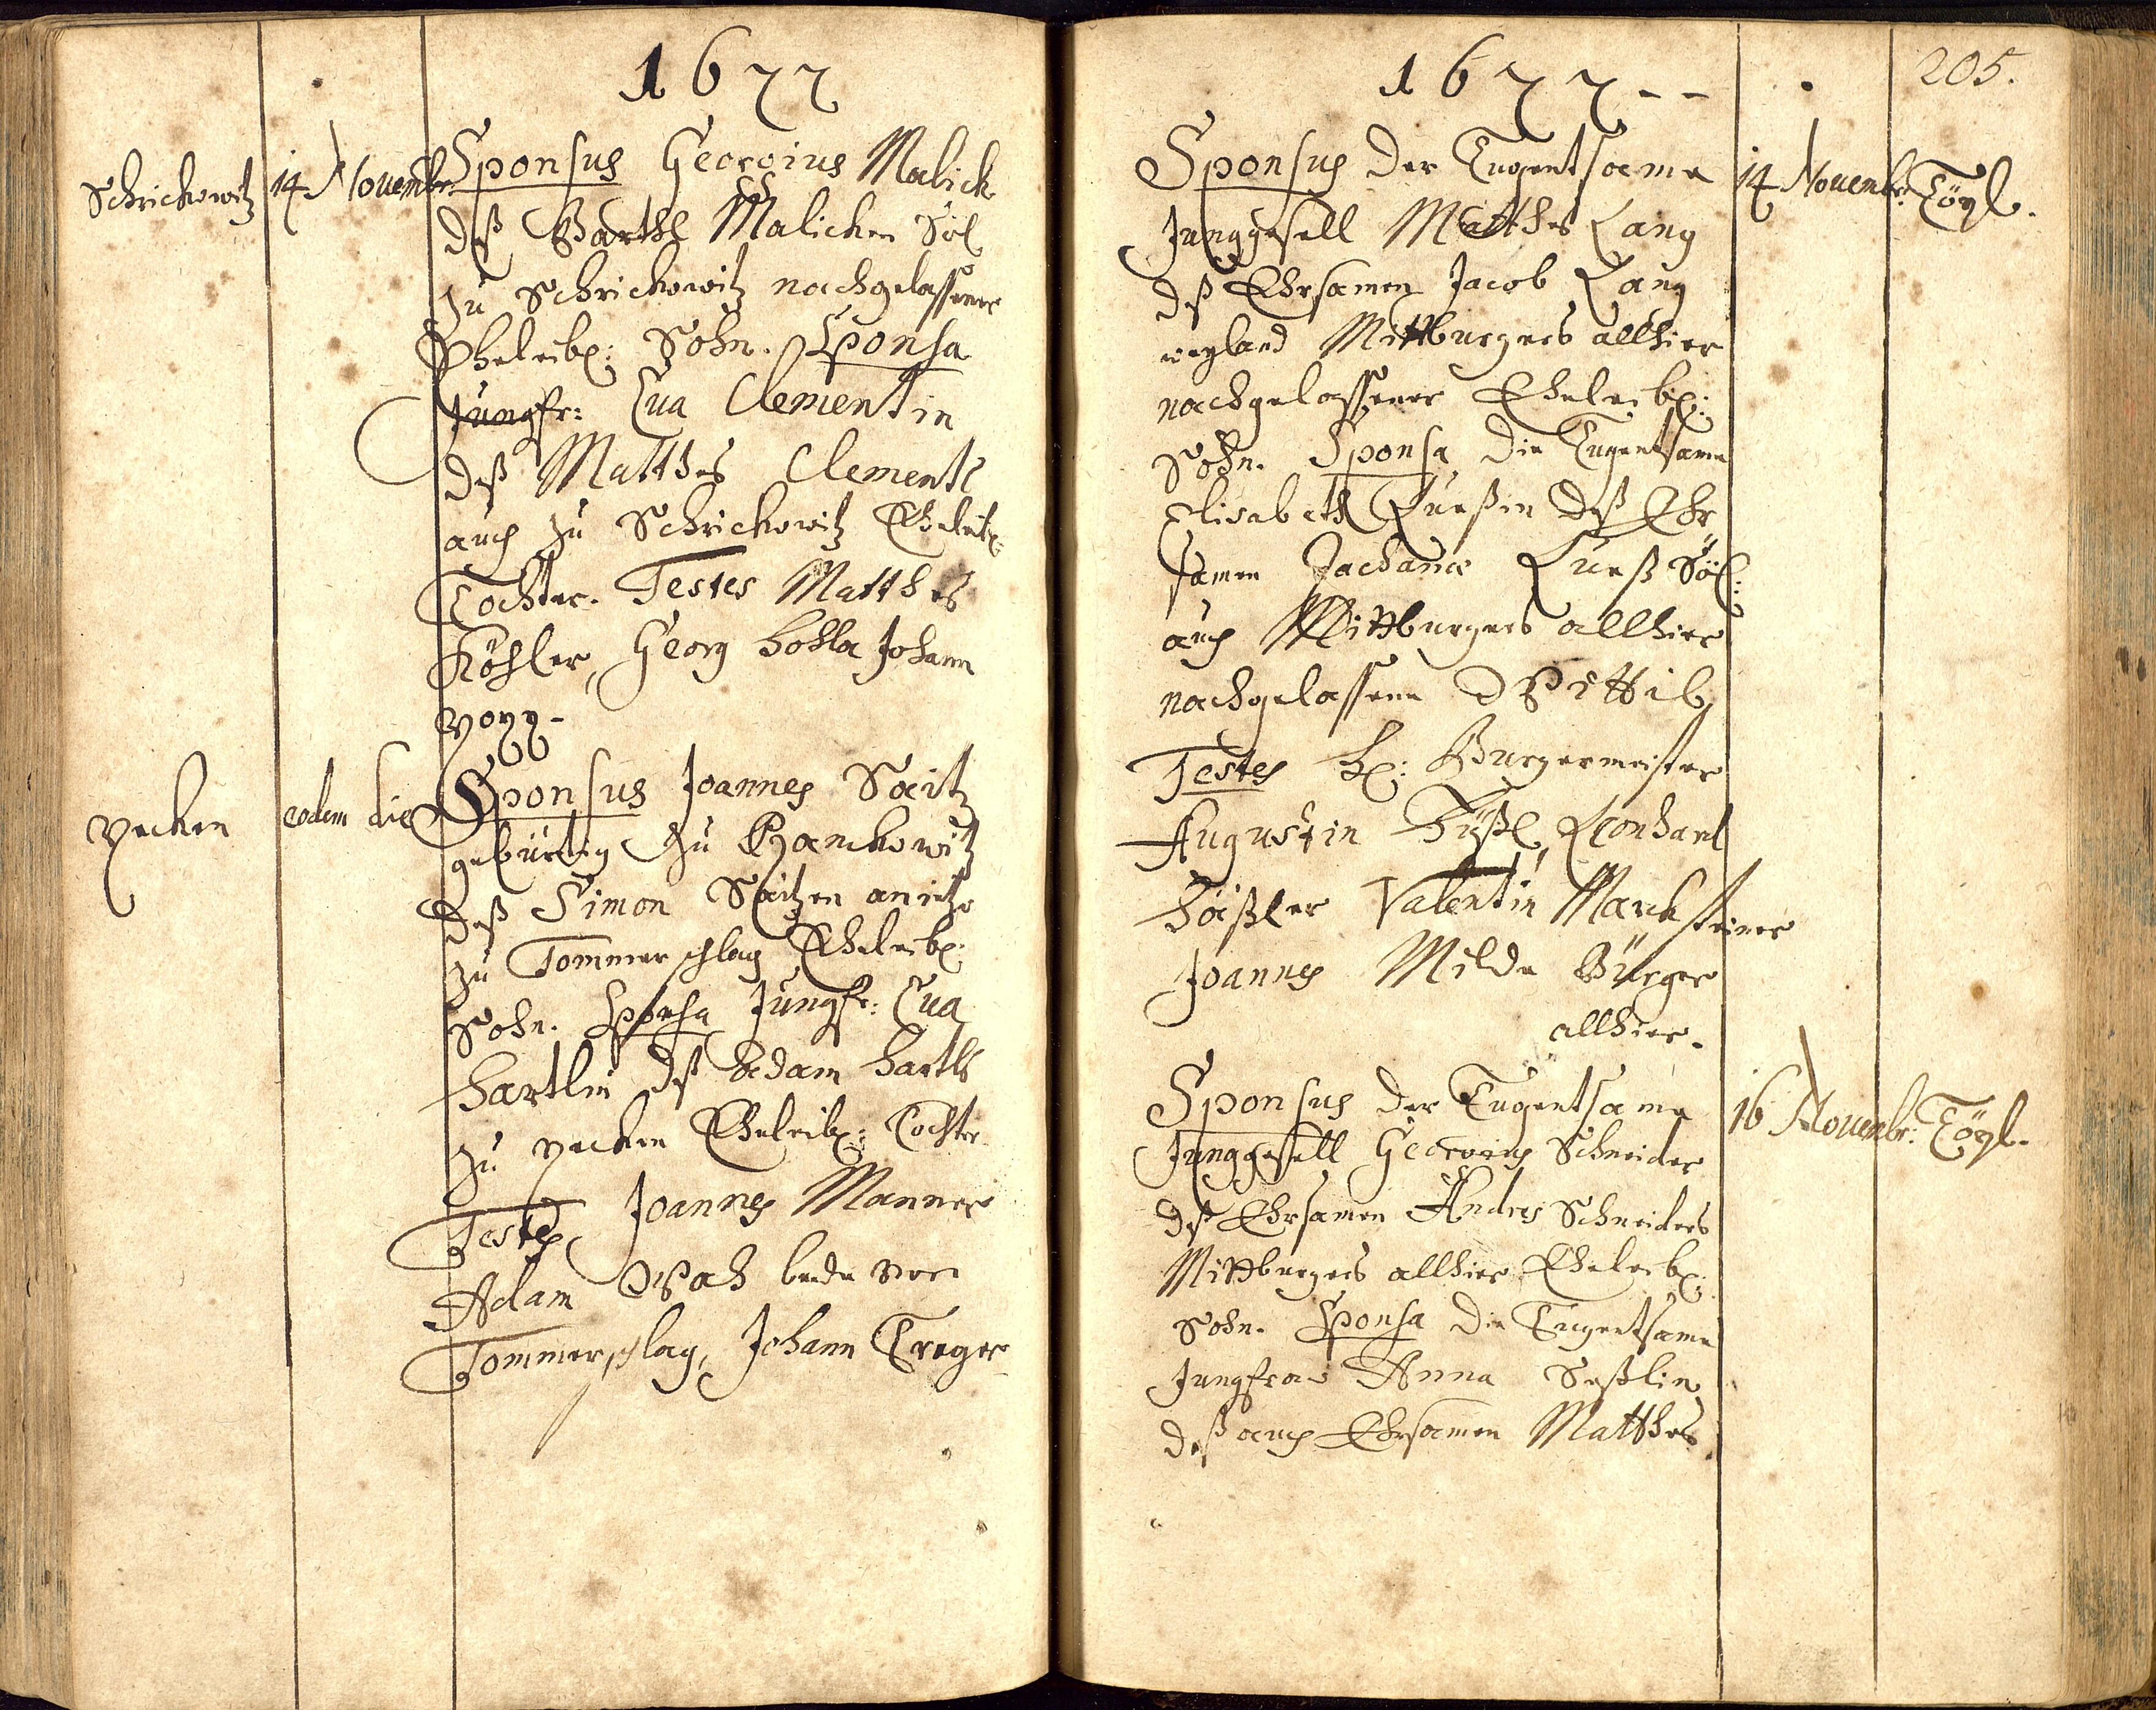 1677
Schrickowitz
14 Novembr:
Sponsus Georgius Malick
deß Barthl Malicken Sël:
zu Schrickowitz nachgelassener
Eheleibl: Sohn. Sponsa
Jungfr: Eua Clementin
deß Matthes Clements
auch zu Schrickowitz Eheleibl:
Tochter. Testes Matthes
Köhler, Georg Johann
eodem die
Sponsus Joannes Saitz
gebürtig zu
deß Simon Saitzen anietzo
zu Tommerschlag Eheleibl:
Sohn. Sponsa Jungfr: Eua
Hartlin deß Adam Hartls
zu Eheleibl: Tochter
Testes Joannes Manner
Adam beede von
Tommerschlag, Johann Treger
1677 - -
205.
Sponsus der Tugentsame
14 Novembr:
Töpl.
Junggesell Matthes Lang
deß Ehrsamen Jacob Lang
weyland Mittburgers allhier
nachgelassener Eheleibl:
Sohn. Sponsa die Tugentsame
Elisabeth deß Ehr
samen Zachariæ Sël:
auch Mittburgers allhier
nachgelassene Wittib
Testes H: Burgermeister
Augustin Leonhart
Valentin Marcksteiner
Joannes Milde Bürger
allhier.
Sponsus der Tugentsame
16 Novembr:
Töpl.
Junggesell Georgius Schneider
deß Ehrsamen Andres Schneiders
Mittburgers allhier Eheleibl:
Sohn. Sponsa die Tugentsame
Jungfrau Anna
deß auch Ehrsamen Matthes